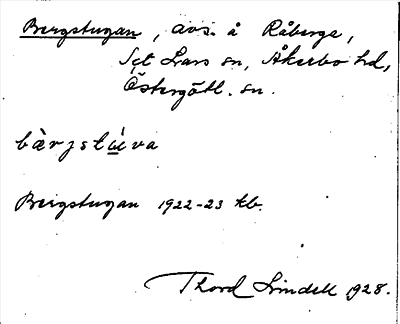 Bergstugan, avs. å Råberga,
S:t Lars sn, Åkerbo hd,
Östergötl. sn.
bärjstu̇va
Bergstugan 1922-23 kb.
Thord Lindell 1928.